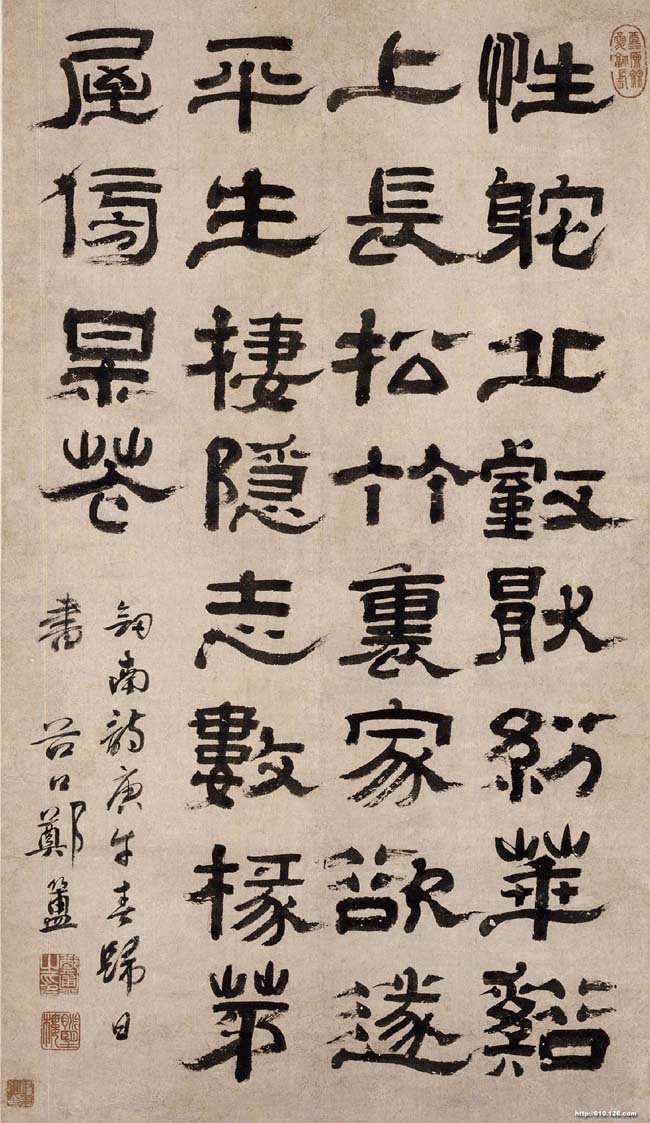 性躭丘壑猒紛華谿
上長松竹裏家欲遂
平生棲隱志數椽茅
屋傍呆花
劍南詩庚午春歸日
書 谷口鄭簠
http://610.126.com